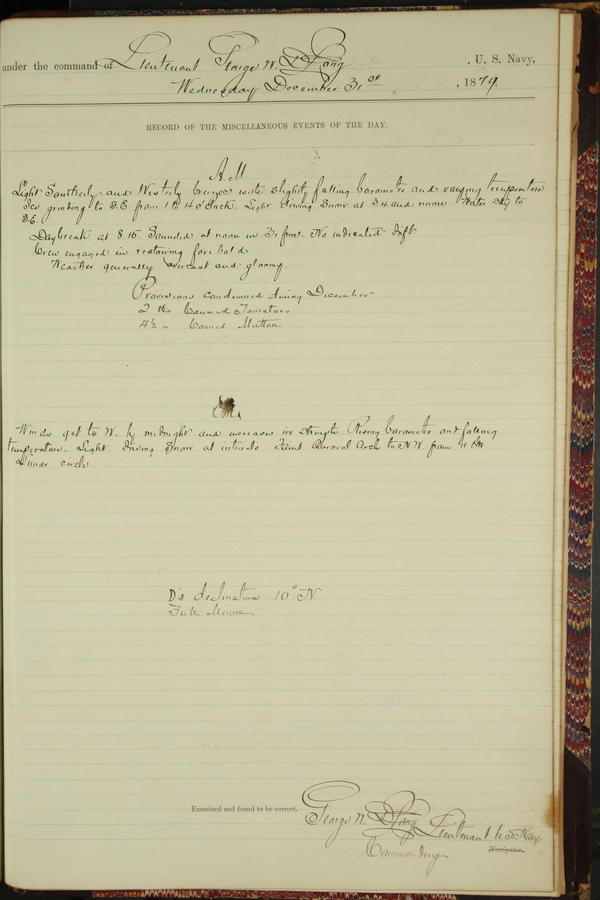 under the command of Lieutenant George W. De Long, U. S. Navy,
Wednesday December 31st, 1879.
RECORD OF THE MISCELLANEOUS EVENTS OF THE DAY.
A M
Light Southerly and Westerly breezes with slightly falling barometer and varying temperature
Ice grinding to S.E. from 1 to 4 o'clock. Light driving Snow at 3 4 and noon. Water Sky to
S.E.
Daybreak at 8.15 Sounded at noon in 31 fms. No indicated drift
Crew engaged in restowing fore hold.
Weather generally overcast and gloomy.
Provisions condemned during December
2 lbs Canned Tomatoes
4½ " Canned Mutton
P.M.
Winds get to W. by midnight and increases in strength Rising barometer and falling
temperature. Light driving Snow at intervals. Faint Auroral Arch to NW from 11 PM
Lunar circle
D's declination 10° N
Full Moon
Examined and found to be correct.
George W. De Long Lieutenant U.S. Navy
Commanding
Navigator.